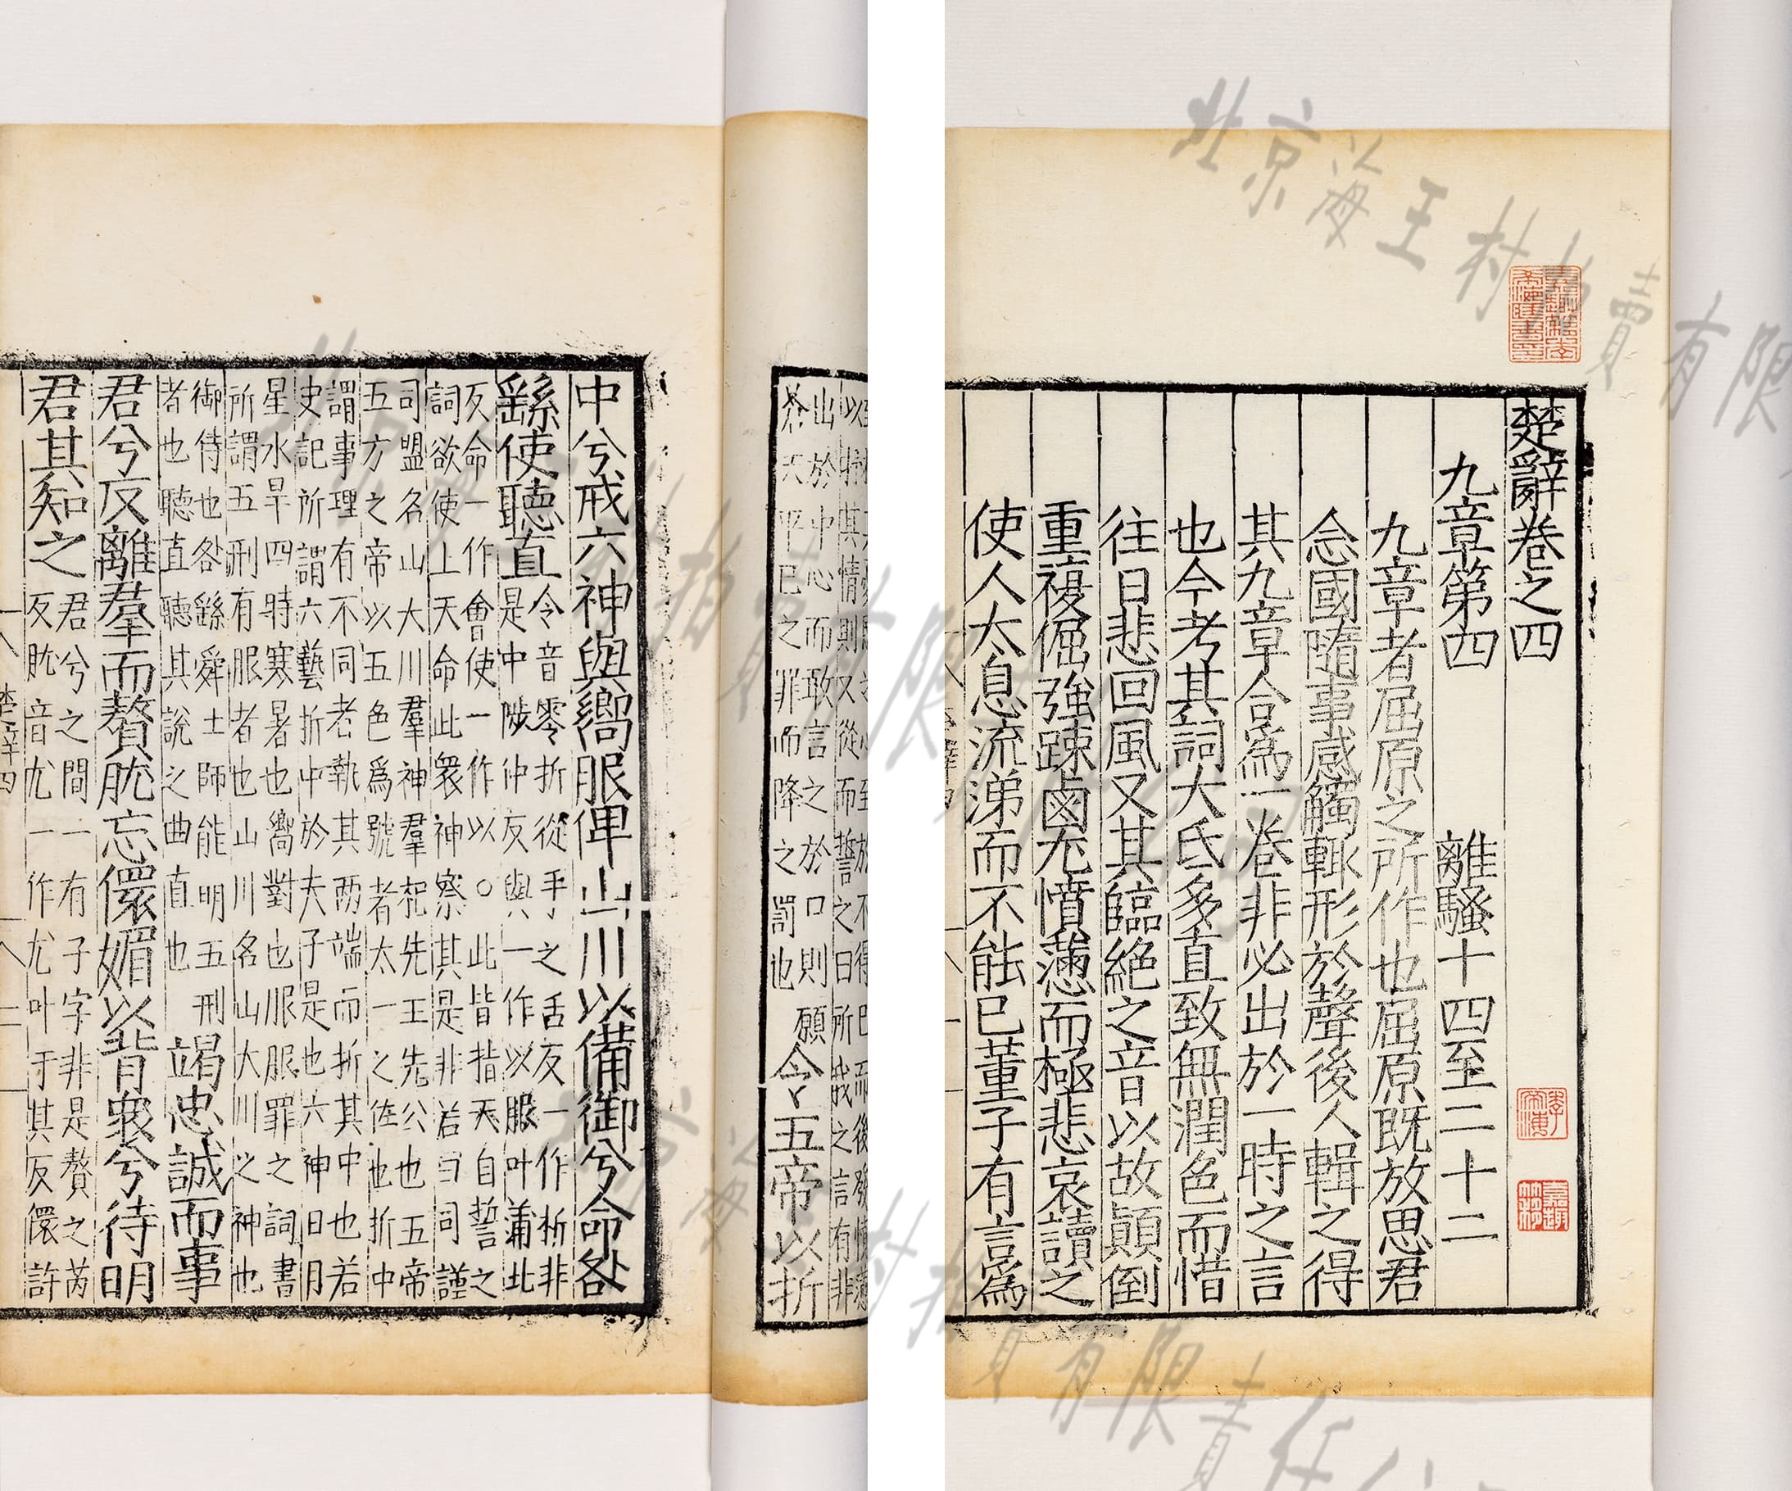 楚辭卷之四
九章第四 離騷十四至二十二
九章者屈原之所作也屈原既放思君
念國隨事感觸輒形於聲後人輯之得
其九章合爲一卷非必出於一時之言
也今考其詞大氐多直致無潤色而惜
往日悲回風又其臨絕之音以故顛倒
重複倔強踈鹵尤憤懣而極悲哀讀之
使人太息流涕而不能已董子有言爲
以抒其情則又從而誓之曰所我之言有非
出於中心而敢言之於口則願
蒼天平已之罪而降之罰也
令五帝以折
中兮戒六神與嚮服俾山川以備御兮命咎
繇使聽直
令音零折從手之舌反一作㭊非
是中陟仲反與一作以服叶蒲北
反命一作會使一作以○此皆指天自誓之
詞欲使上天命此衆神察其是非若曰司謹
司盟名山大川羣神羣祀先王先公也五帝
五方之帝以五色爲號者太一之佐也折中
謂事理有不同者執其兩端而折其中也若
史記所謂六藝折中於夫子是也六神日月
星水旱四時寒暑也嚮對也服服罪之詞書
所謂五刑有服者也山川名山大川之神也
御侍也咎繇舜士師能明五刑
者也聽直聽其說之曲直也
竭忠誠而事
君兮反離羣而贅肬忘儇媚以背衆兮待明
君其知之
君兮之間一有子字非是贅之芮
反肬音尤一作尤叶于其反儇許
楚辭四
北京海王村拍賣有限責任公司